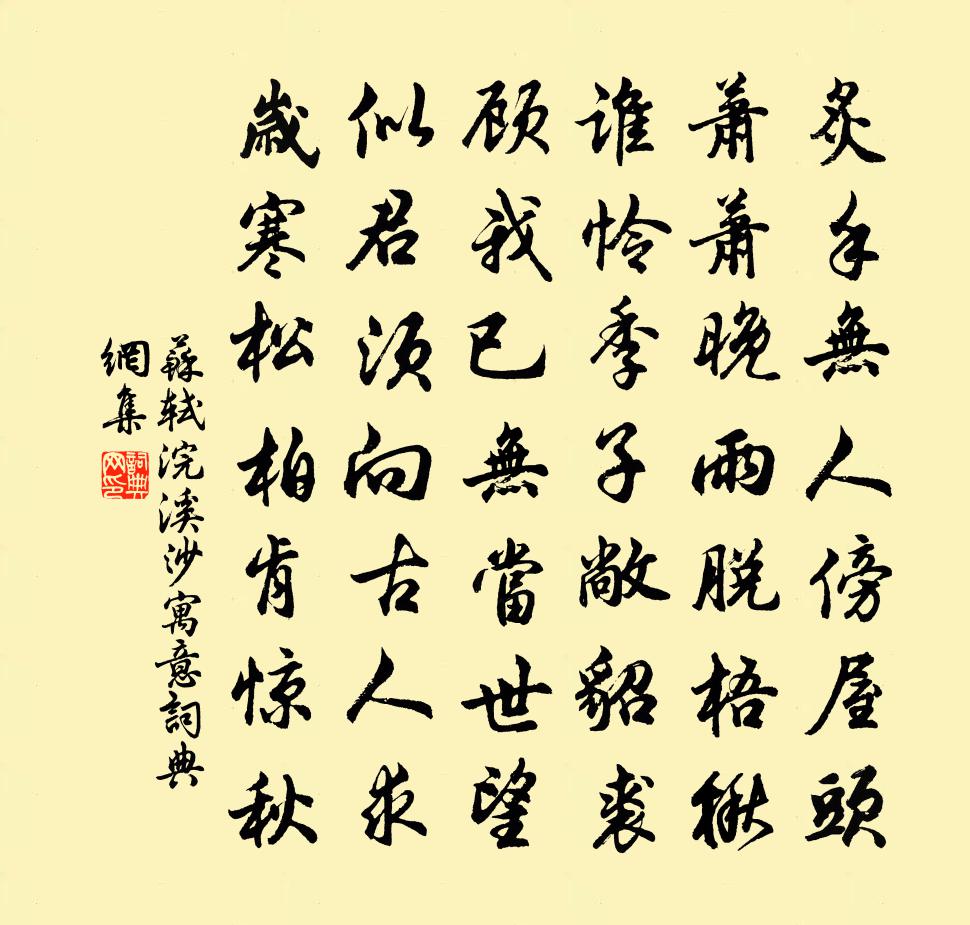 炙手無人傍屋頭
蕭蕭晚雨脫梧楸
誰怜季子敝貂裘
顾我已無當世望
似君须向古人求
歲寒松柏肯惊秋
蘇轼浣溪沙寓意詞典
網集
詞典
网